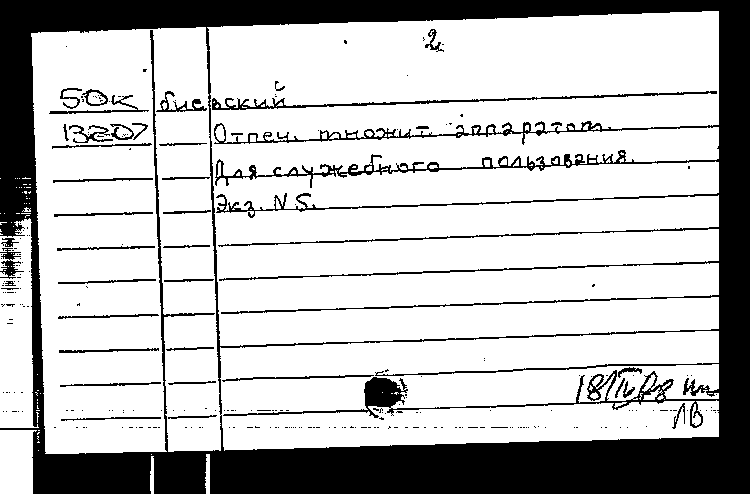 2
50к биевский
13207 Отпеч. множит. аппаратом.
Для служебного пользования.
Экз. N 5.
ЛВ